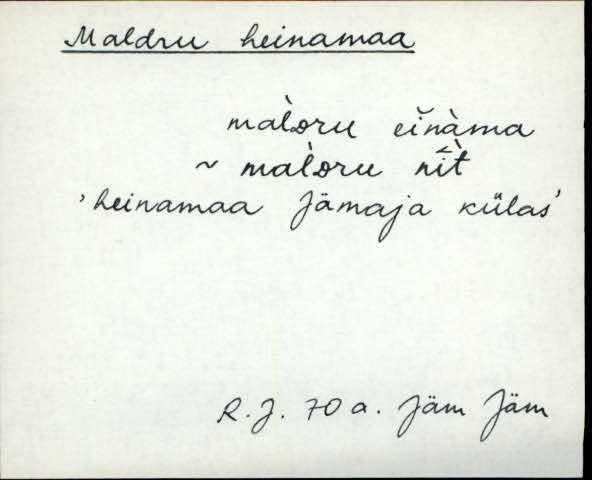 Maldru heinamaa
mal̀dru eĭnàma
~ mal̀dru nît̀
'heinamaa Jämaja külas'
R. J. 70 a. Jäm Jäm